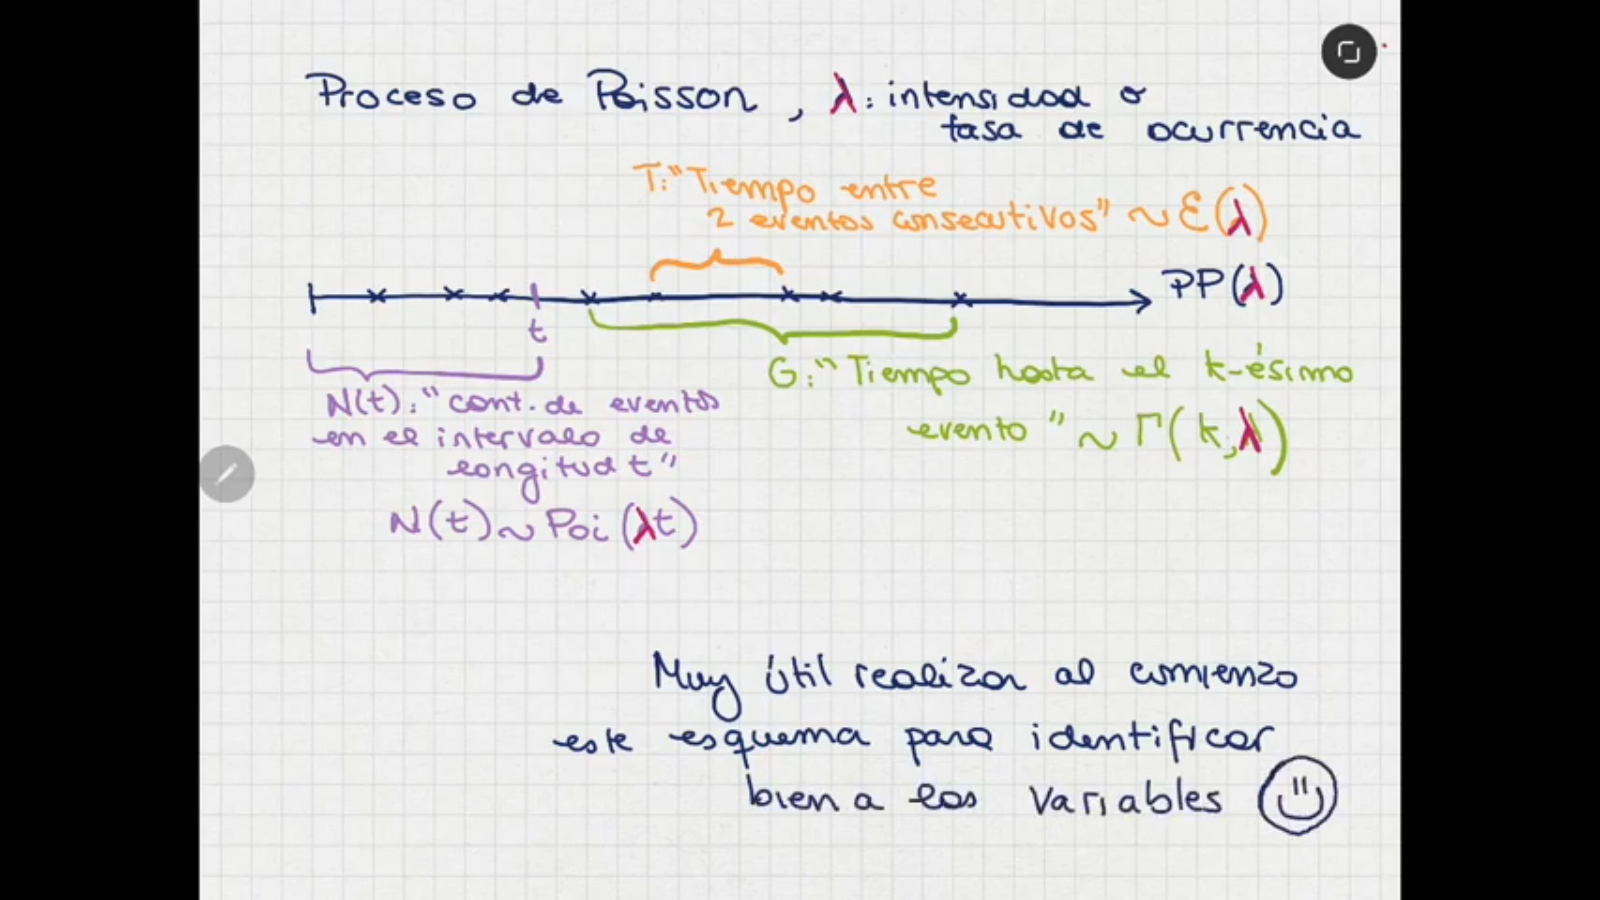 Proceso de Poisson, λ: intensidad o
tasa de ocurrencia
T: "Tiempo entre
2 eventos consecutivos" ~ Ɛ(λ)
PP(λ)
t
G: "Tiempo hasta el k-ésimo
evento" ~ Γ(k,λ)
N(t): "cant. de eventos
en el intervalo de
longitud t"
N(t) ~ Poi(λt)
Muy útil realizar al comienzo
este esquema para identificar
bien a las variables